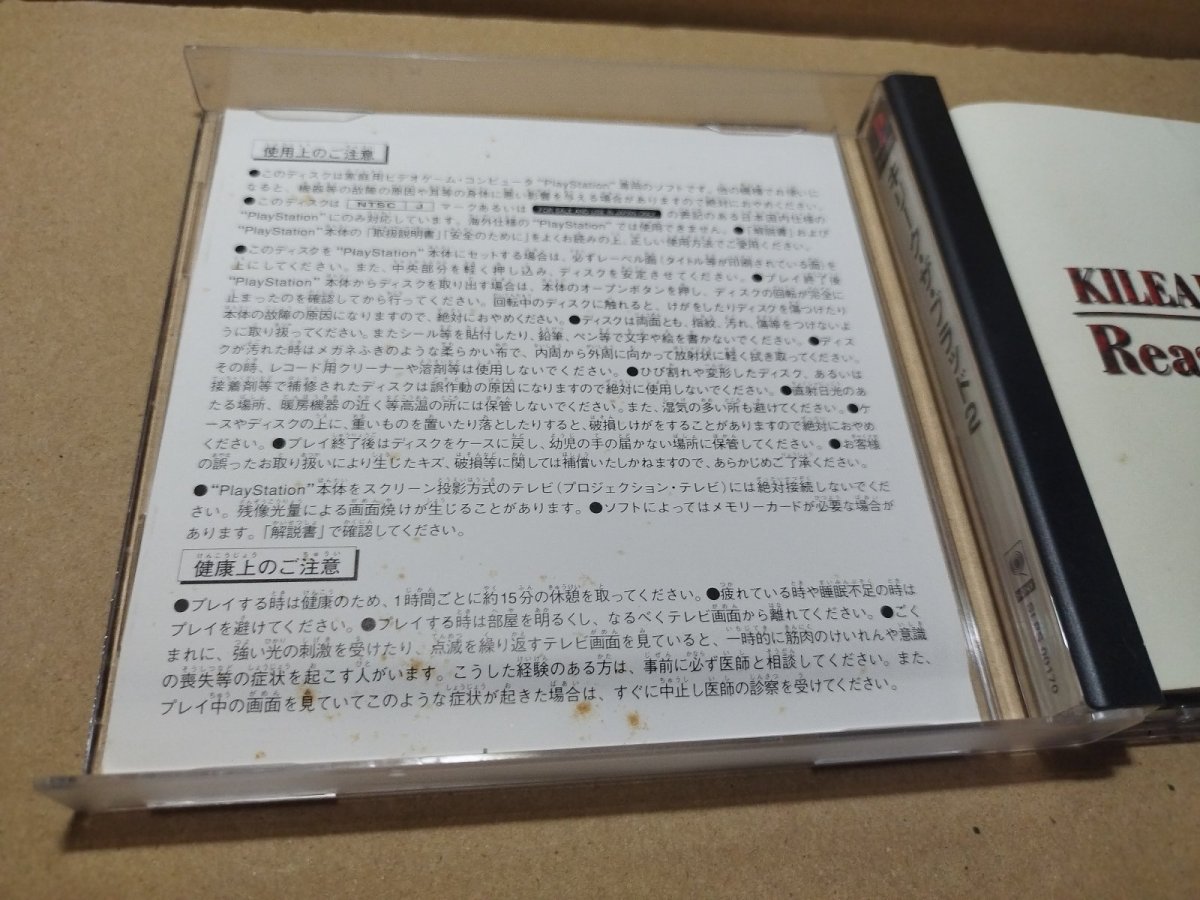 使用上のご注意
●このディスクは家庭用ビデオゲーム・コンピュータ“PlayStation”専用のソフトです。他の機種でお使いに
なると、機器等の故障の原因や耳等の身体に悪い影響を与える場合がありますので絶対におやめください。
●このディスクは NTSC J マークあるいは の表記のある日本国内仕様の
“PlayStation”にのみ対応しています。海外仕様の“PlayStation”では使用できません。●「解説書」および
“PlayStation”本体の「取扱説明書」「安全のために」をよくお読みの上、正しい使用方法でご使用ください。
●このディスクを“PlayStation”本体にセットする場合は、必ずレーベル面(タイトル等が印刷されている面)を
上にしてください。また、中央部分を軽く押し込み、ディスクを安定させてください。●プレイ終了後
“PlayStation”本体からディスクを取り出す場合は、本体のオープンボタンを押し、ディスクの回転が完全に
止まったのを確認してから行ってください。回転中のディスクに触れると、けがをしたりディスクを傷つけたり
本体の故障の原因になりますので、絶対におやめください。●ディスクは両面とも、指紋、汚れ、傷等をつけないよ
うに取り扱ってください。またシール等を貼付したり、鉛筆、ペン等で文字や絵を書かないでください。●ディス
クが汚れた時はメガネふきのような柔らかい布で、内周から外周に向かって放射状に軽く拭き取ってください。
その時、レコード用クリーナーや溶剤等は使用しないでください。●ひび割れや変形したディスク、あるいは
接着剤等で補修されたディスクは誤作動の原因になりますので絶対に使用しないでください。●直射日光のあ
たる場所、暖房機器の近く等高温の所には保管しないでください。また、湿気の多い所も避けてください。●ケ
ースやディスクの上に、重いものを置いたり落としたりすると、破損しけがをすることがありますので絶対におやめ
ください。●プレイ終了後はディスクをケースに戻し、幼児の手の届かない場所に保管してください。●お客様
の誤ったお取り扱いにより生じたキズ、破損等に関しては補償いたしかねますので、あらかじめご了承ください。
●“PlayStation”本体をスクリーン投影方式のテレビ(プロジェクション・テレビ)には絶対接続しないでくだ
さい。残像光量による画面焼けが生じることがあります。●ソフトによってはメモリーカードが必要な場合が
あります。「解説書」で確認してください。
健康上のご注意
●プレイする時は健康のため、1時間ごとに約15分の休憩を取ってください。●疲れている時や睡眠不足の時は
プレイを避けてください。●プレイする時は部屋を明るくし、なるべくテレビ画面から離れてください。●ごく
まれに、強い光の刺激を受けたり、点滅を繰り返すテレビ画面を見ていると、一時的に筋肉のけいれんや意識
の喪失等の症状を起こす人がいます。こうした経験のある方は、事前に必ず医師と相談してください。また、
プレイ中の画面を見ていてこのような症状が起きた場合は、すぐに中止し医師の診察を受けてください。
キリーク・ザ・ブラッド2
SLPS 00170
KILEA
Reas